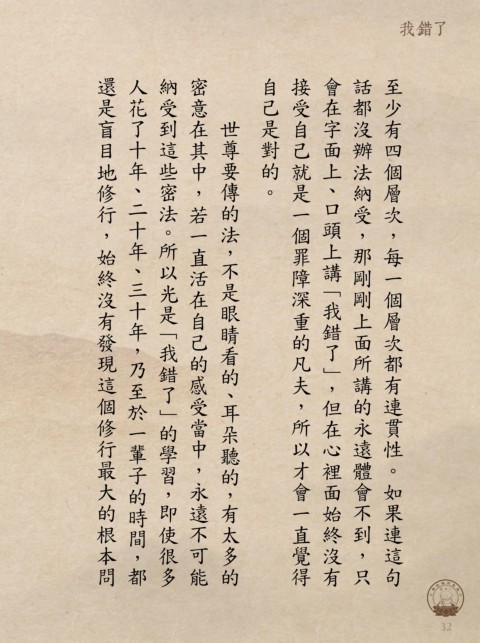 我錯了
至少有四個層次，每一個層次都有連貫性。如果連這句
話都沒辦法納受，那剛剛上面所講的永遠體會不到，只
會在字面上、口頭上講「我錯了」，但在心裡面始終沒有
接受自己就是一個罪障深重的凡夫，所以才會一直覺得
自己是對的。
世尊要傳的法，不是眼睛看的、耳朵聽的，有太多的
密意在其中，若一直活在自己的感受當中，永遠不可能
納受到這些密法。所以光是「我錯了」的學習，即使很多
人花了十年、二十年、三十年，乃至於一輩子的時間，都
還是盲目地修行，始終沒有發現這個修行最大的根本問
32